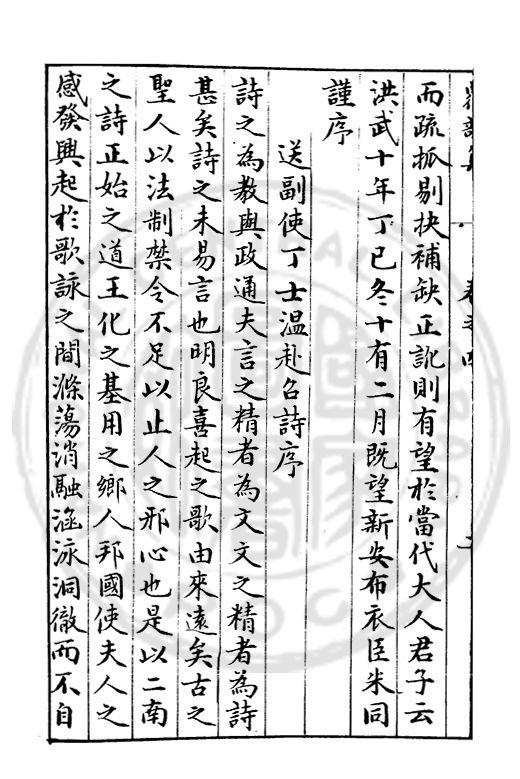 卷之四
而疏抓剔抉補缺正訛則有望於當代大人君子云
洪武十年丁巳冬十有二月既望新安布衣臣朱同
謹序
送副使丁士温赴召詩序
詩之為教與政通夫言之精者為文文之精者為詩
甚矣詩之未易言也明良喜起之歌由來遠矣古之
聖人以法制禁令不足以止人之邪心也是以二南
之詩正始之道王化之基用之鄉人邦國使夫人之
感發興起於歌詠之間滌蕩消融涵泳洞徹而不自